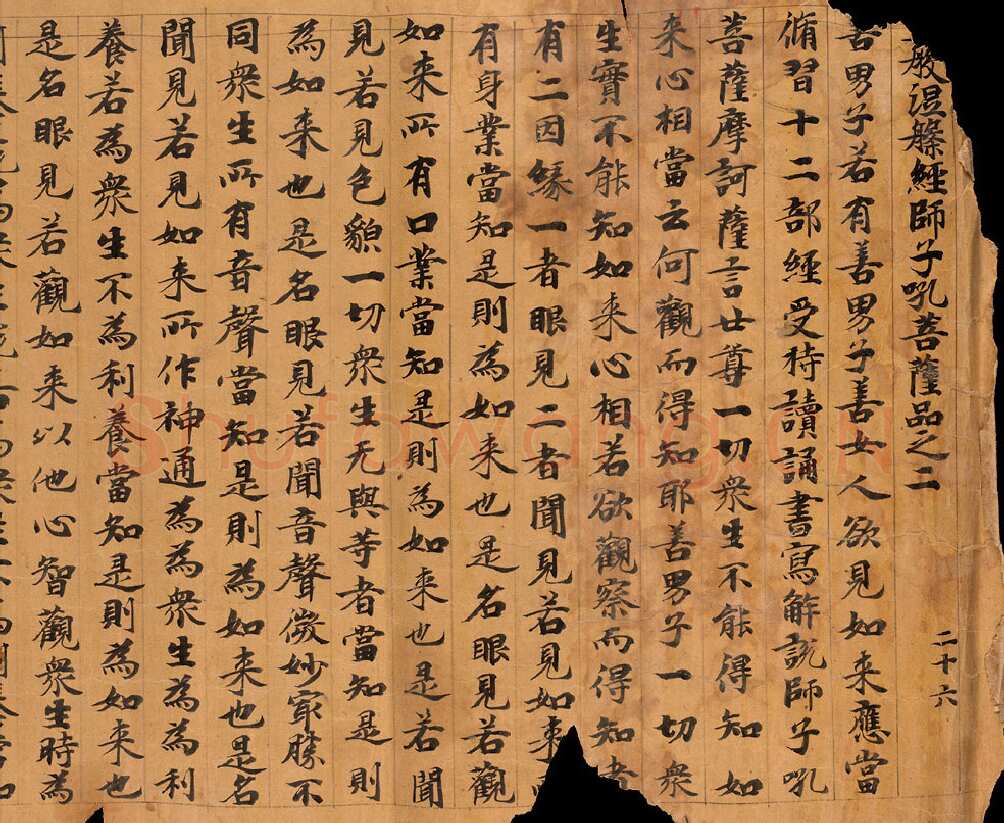 般涅槃經師子吼菩薩品之二 二十六
善男子若有善男子善女人欲見如来應當
脩習十二部經受持讀誦書寫解説師子吼
菩薩摩訶薩言世尊一切衆生不能得知如
来心相當云何觀而得知耶善男子一切衆
生實不能知如来心相若欲觀察而得知者
有二因緣一者眼見二者聞見若見如来
有身業當知是則為如来也是名眼見若觀
如来所有口業當知是則為如来也是若聞
見若見色貌一切衆生无與等者當知是則
為如来也是名眼見若聞音聲微妙冣勝不
同衆生所有音聲當知是則為如来也是名
聞見若見如来所作神通為為衆生為為利
養若為衆生不為利養當知是則為如来也
是名眼見若觀如来以他心智觀衆生時為
Shufawang.cn